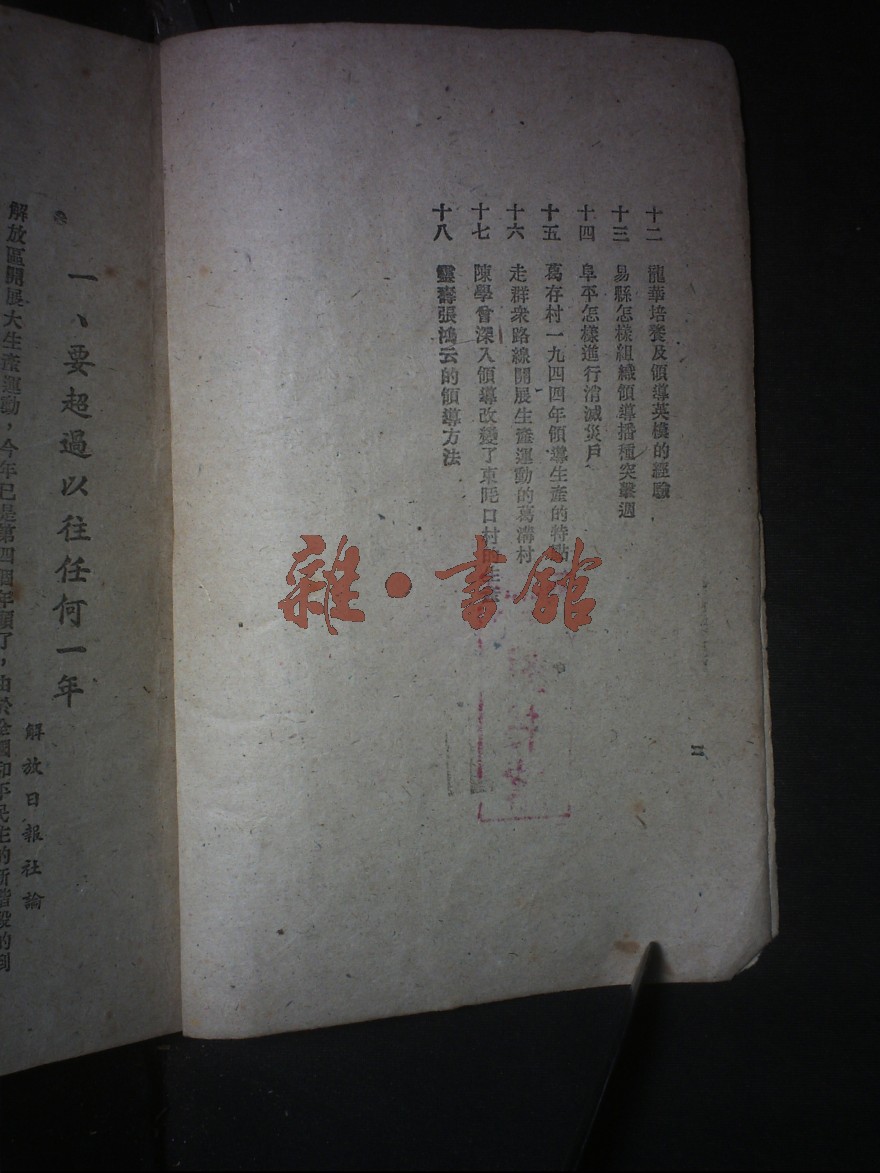 十二　龍華培養及領導英模的經驗
十三　易縣怎樣組織領導播種突擊週
十四　阜平怎樣進行消滅災戶
十五　葛存村一九四四年領導生產的特點
十六　走群衆路線開展生產運動的葛溝村
十七　陳學曾深入領導改變了東 口村 生
十八　靈壽張鴻云的領導方法
二
雜·書館
一、要超過以往任何一年
解放日報社論
解放區開展大生產運動，今年已是第四個年頭了，由於全國和平民主的新階段的到